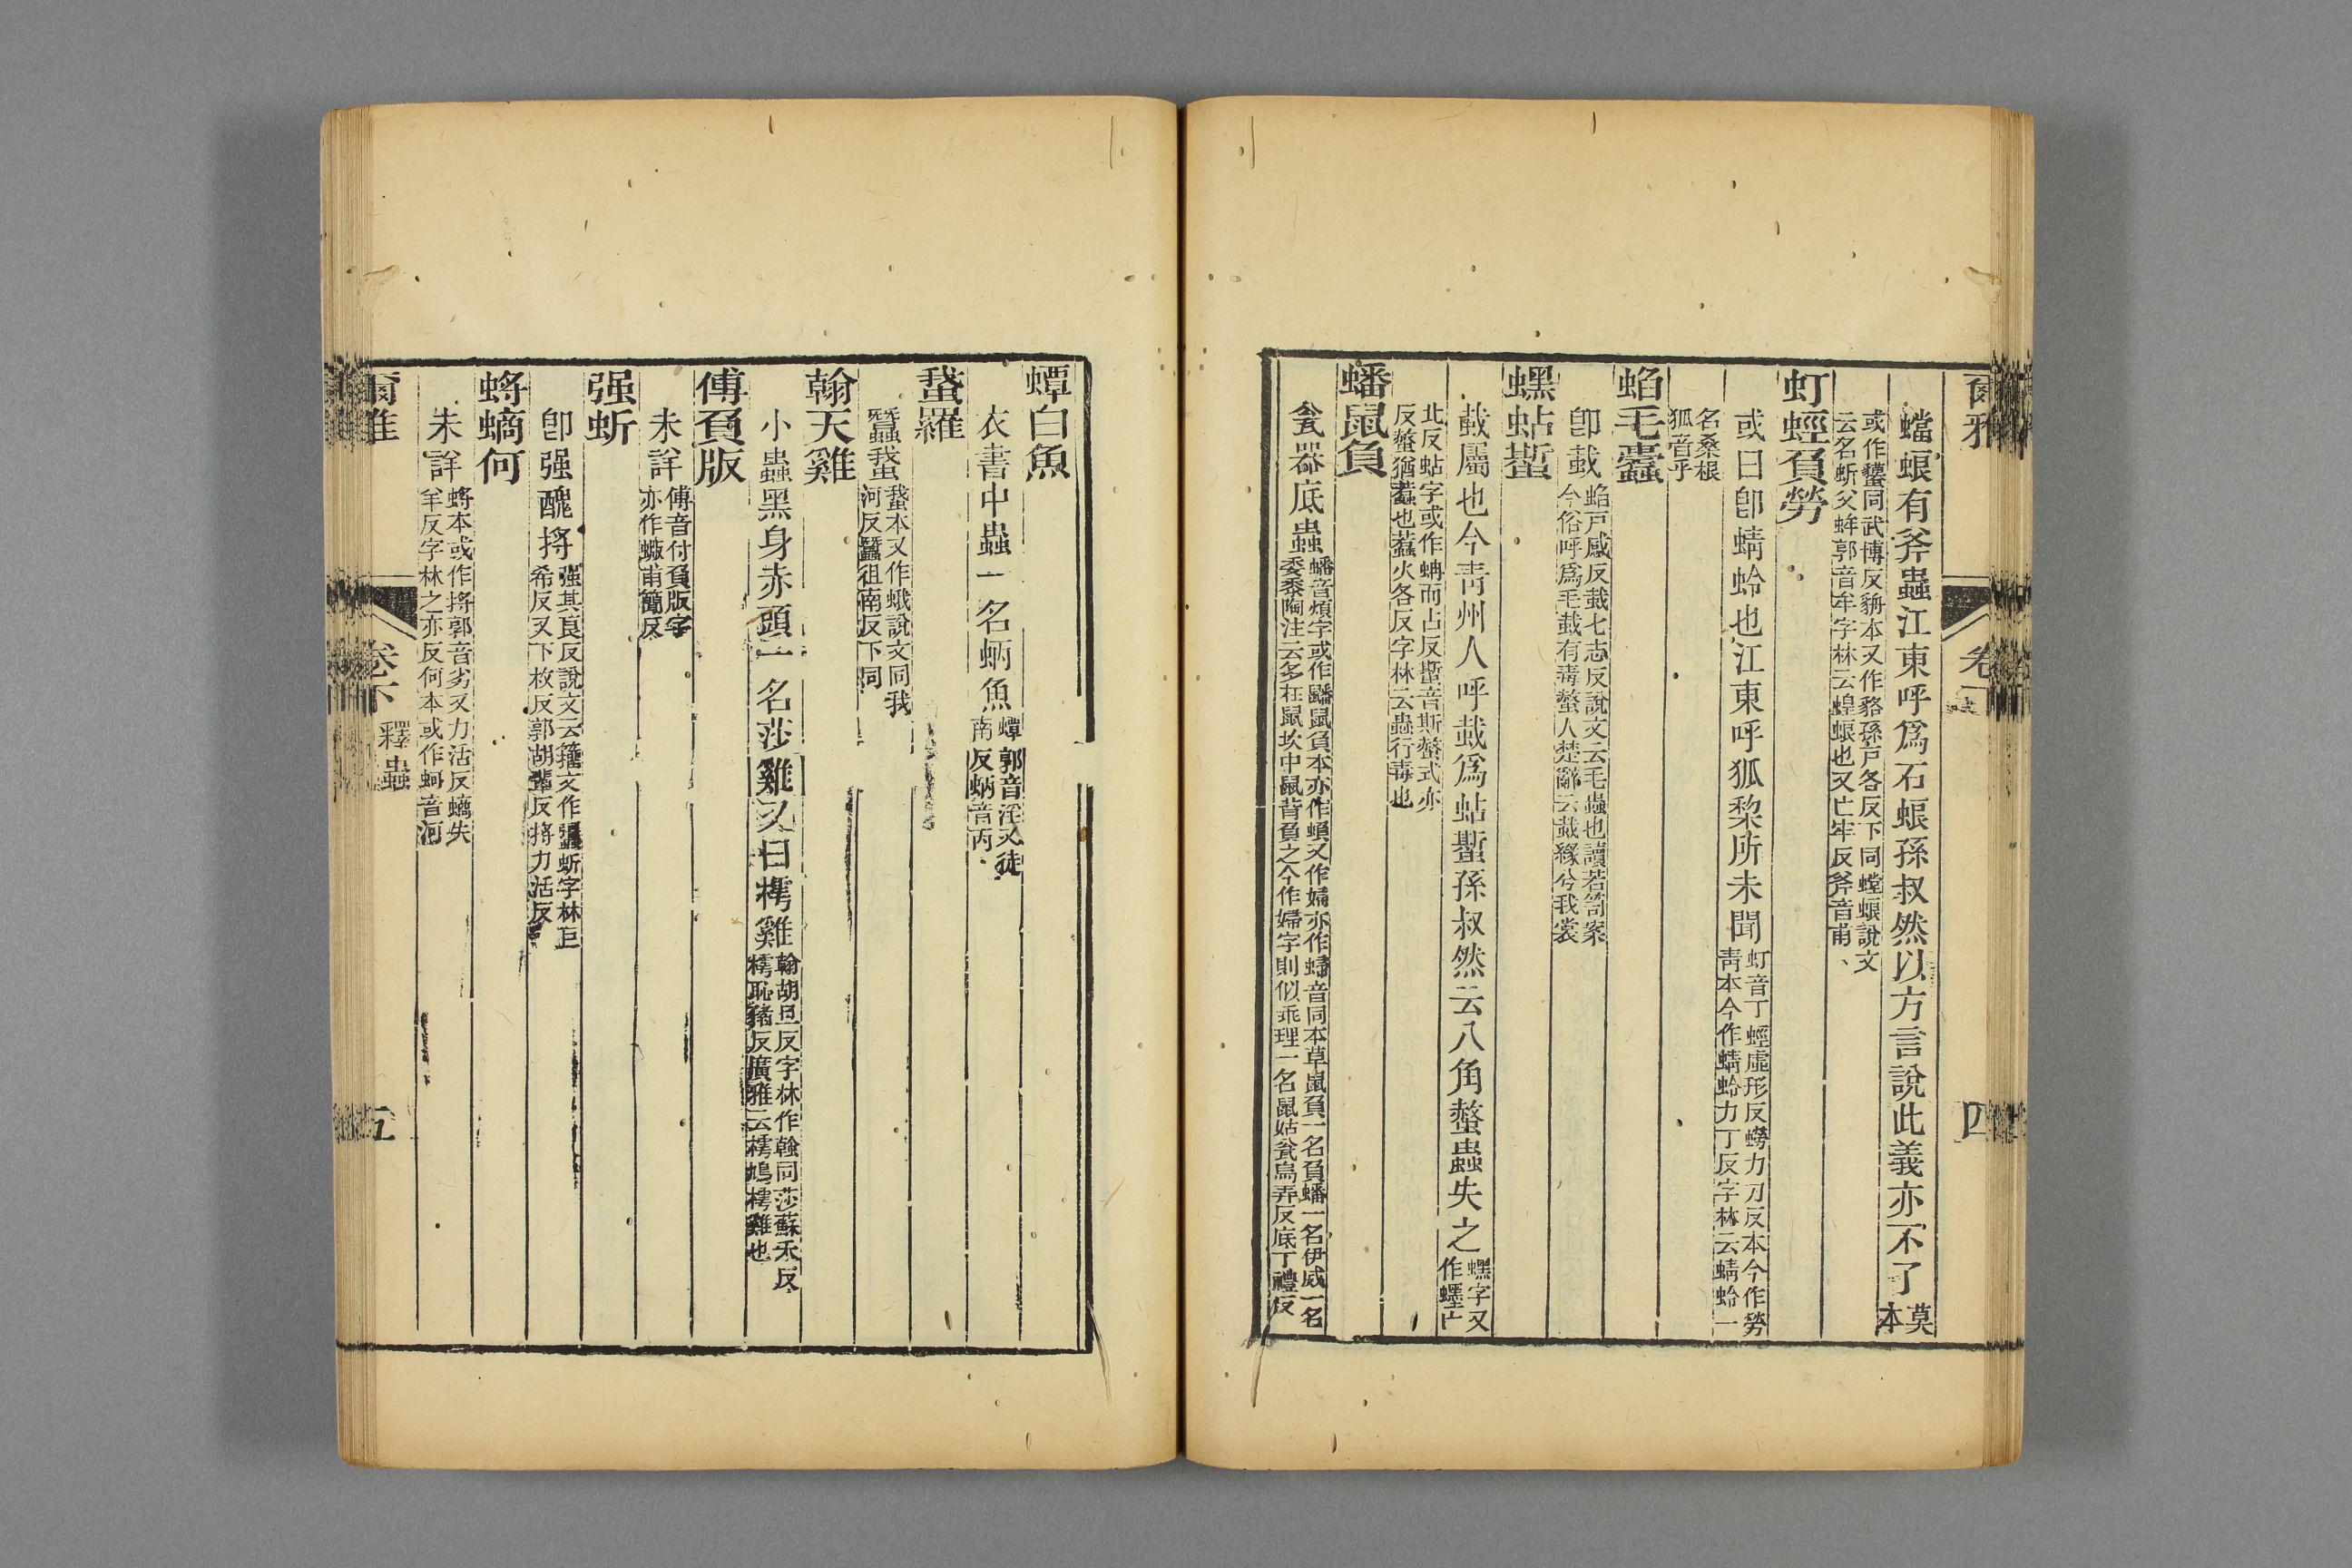 爾雅
卷下
四
蟷蜋有斧蟲江東呼爲石蜋孫叔然以方言說此義亦不了莫本
或作蟇同武博反貈本又作貉孫戸各反下同螳蜋說文
云名蚚父蛑郭音牟字林云蝗蜋也又亡牢反斧音甫
虰蛵負勞
或曰卽蜻蛉也江東呼狐棃所未聞
虰音丁蛵虛形反蟧力刀反本今作勞
靑本今作蜻蛉力丁反字林云蜻蛉一
名桑根
狐音乎
蛅毛蠹
卽蛓
蛅戸感反蛓七志反說文云毛蟲也讀若笥案
今俗呼爲毛蛓有毒螫人楚辭云蛓緣兮我裳
蟔蛅蟴
蛓屬也今靑州人呼蛓爲蛅蟴孫叔然云八角螫蟲失之
蟔字又
作䘃亡
北反蛅字或作蚺而占反蟴音斯螫式亦
反螫猶蠚也蠚火各反字林云蟲行毒也
蟠鼠負
瓮器底蟲
蟠音煩字或作鼶鼠負本亦作蝜又作婦亦作蟳音同本草鼠負一名負蟠一名伊威一名
委黍陶注云多在鼠坎中鼠背負之今作婦字則似乖理一名鼠姑瓮烏弄反底丁禮反
蟫白魚
衣書中蟲一名蛃魚
蟫郭音淫又徒
南反蛃音丙
蛾羅
蠶蛾
蛾本又作蛾說文同我
河反蠶徂南反下同
翰天雞
小蟲黑身赤頭一名莎雞又曰樗雞
翰胡旦反字林作螒同莎蘇禾反
樗恥豬反廣雅云樗鳩樗雞也
傅負版
未詳
傅音付負版字
亦作蝂甫簡反
强蚚
卽强醜捋
强其良反說文云籒文作䖑蚚字林巨
希反又下枚反郭胡輩反捋力活反
蛶螪何
未詳
蛶本或作捋郭音劣又力活反螪失
羊反字林之亦反何本或作蚵音河
爾雅
卷下
釋蟲
五